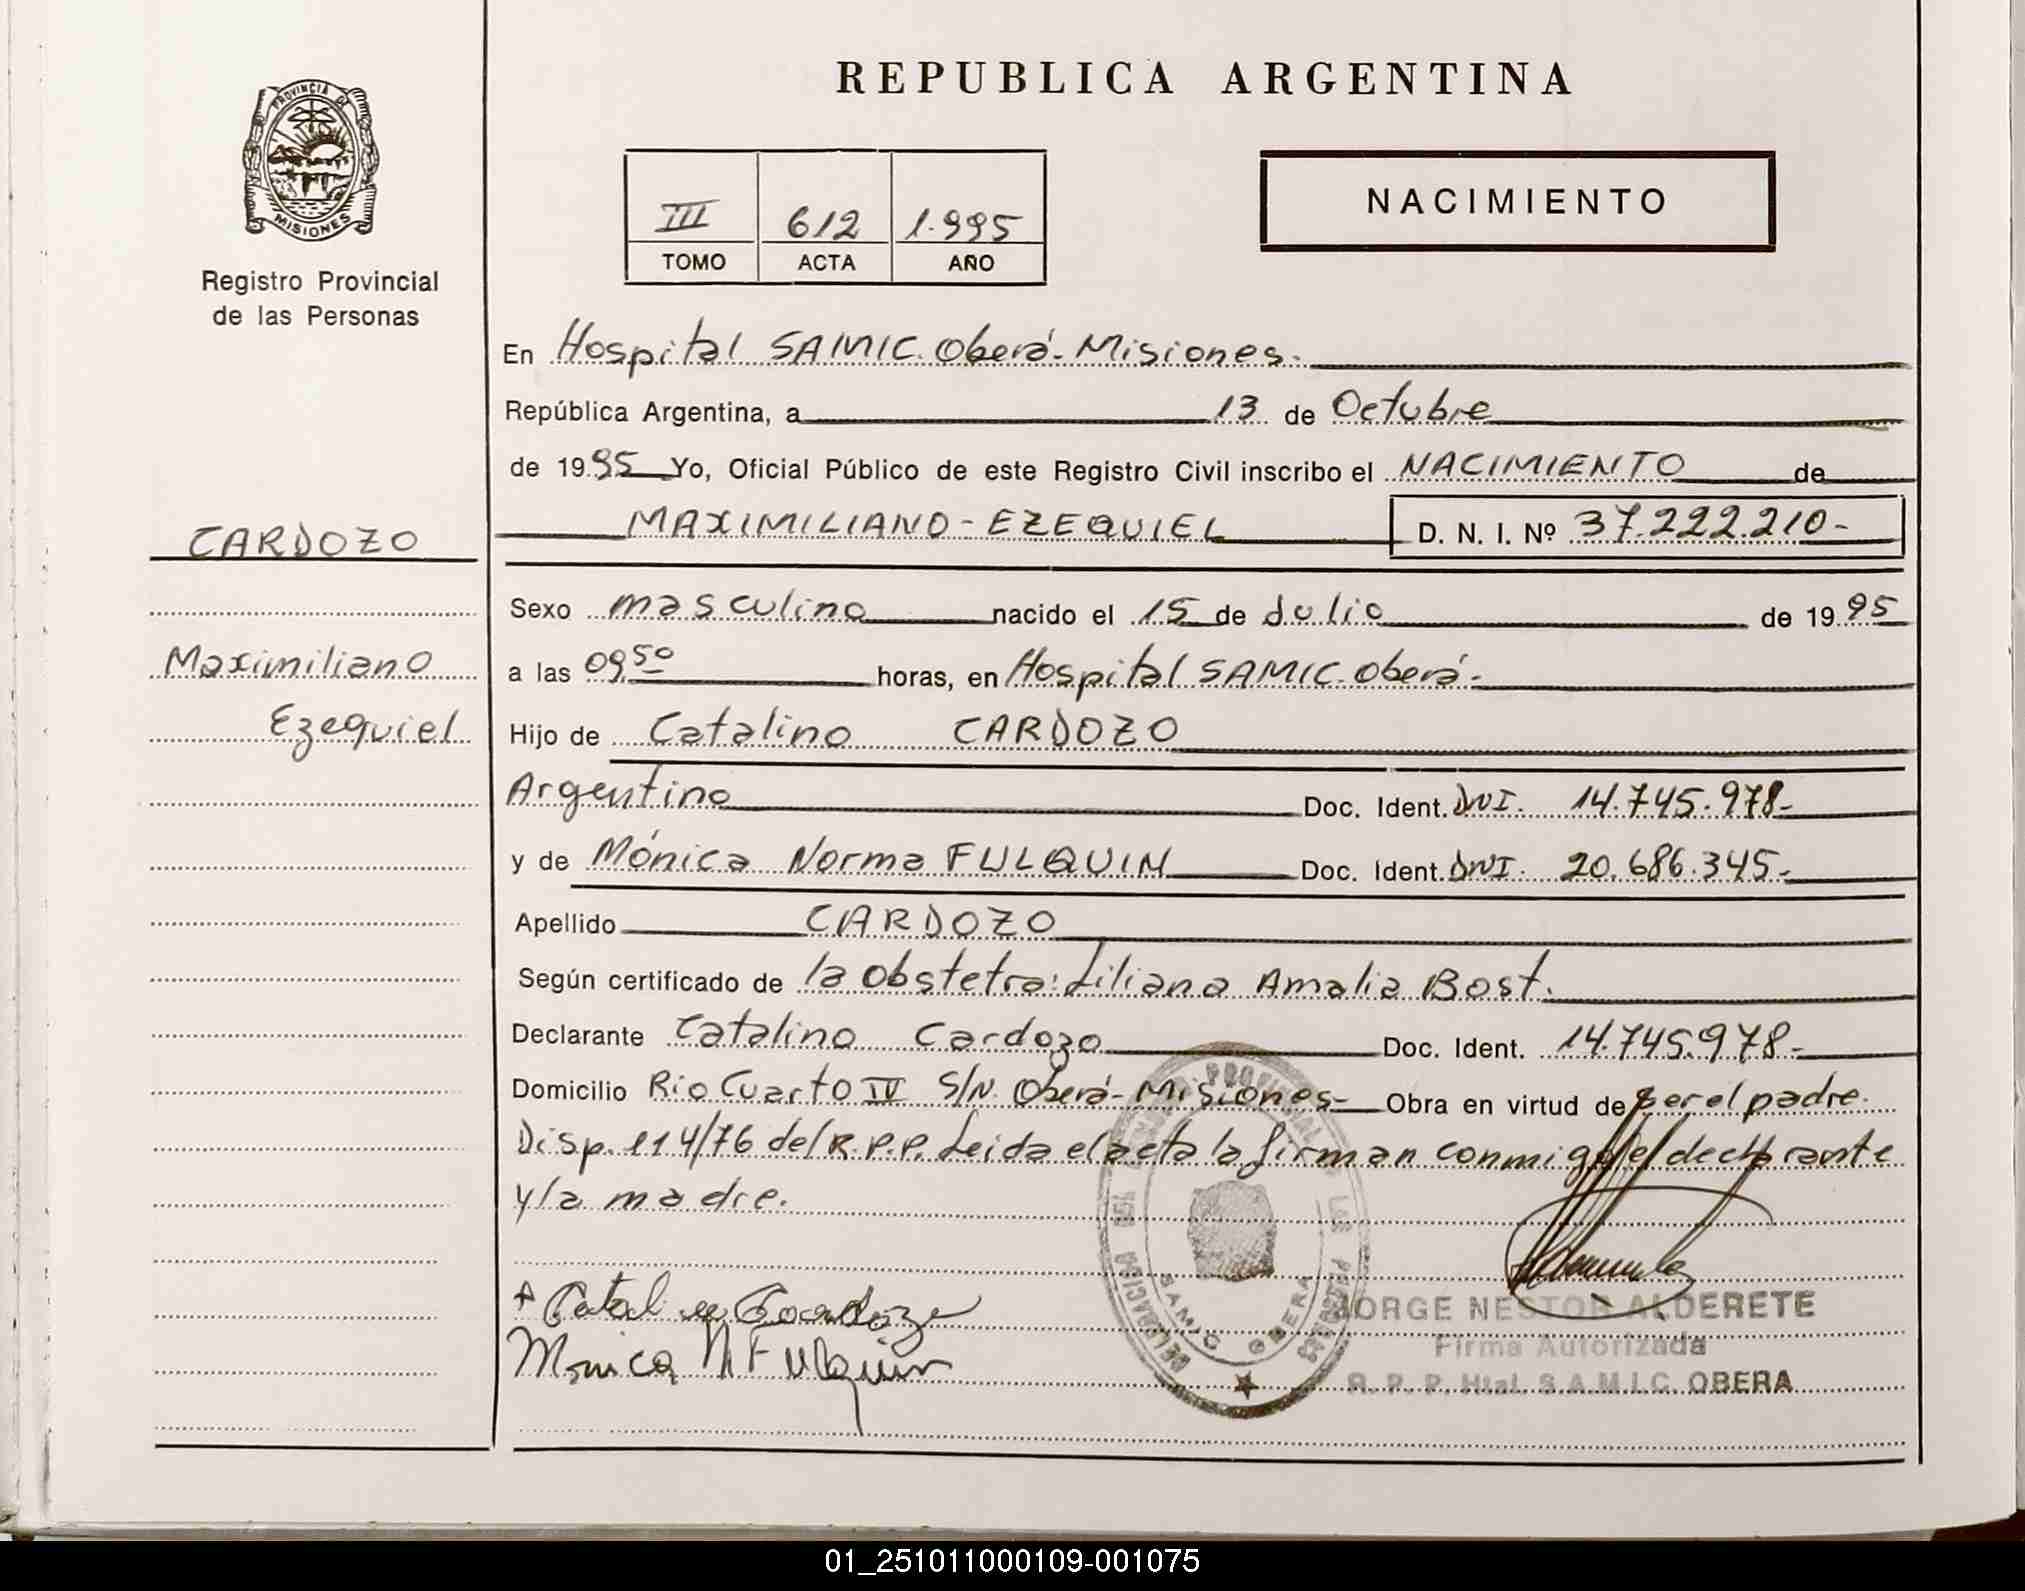 REPUBLICA ARGENTINA
PROVINCIA DE
MISIONES
Registro Provincial
de las Personas
III 612 1.995
TOMO ACTA AÑO
NACIMIENTO
En Hospital SAMIC. Oberá-Misiones.
República Argentina, a 13 de Octubre
de 1995 Yo, Oficial Público de este Registro Civil inscribo el NACIMIENTO de
MAXIMILIANO-EZEQUIEL D. N. I. Nº 37.222.210-
CARDOZO
Maximiliano
Ezequiel
Sexo masculino nacido el 15 de Julio de 1995
a las 09,50 horas, en Hospital SAMIC. Oberá-
Hijo de Catalino CARDOZO
Argentino Doc. Ident. DNI. 14.745.978-
y de Mónica Norma FULQUIN Doc. Ident. DNI. 20.686.345-
Apellido CARDOZO
Según certificado de la Obstetra: Liliana Amalia Bost.
Declarante Catalino Cardozo Doc. Ident. 14.745.978-
Domicilio Rio Cuarto IV S/N. Oberá-Misiones- Obra en virtud de ser el padre.
Disp. 114/76 del R.P.P. Leida el acta la firman conmigo el declarante
y la madre.
Catalino Cardozo
Monica N Fulquin
JORGE NESTOR ALDERETE
Firma Autorizada
R. P. P. Htal. S.A.M.I.C. OBERA
SAMIC OBERA
01_251011000109-001075